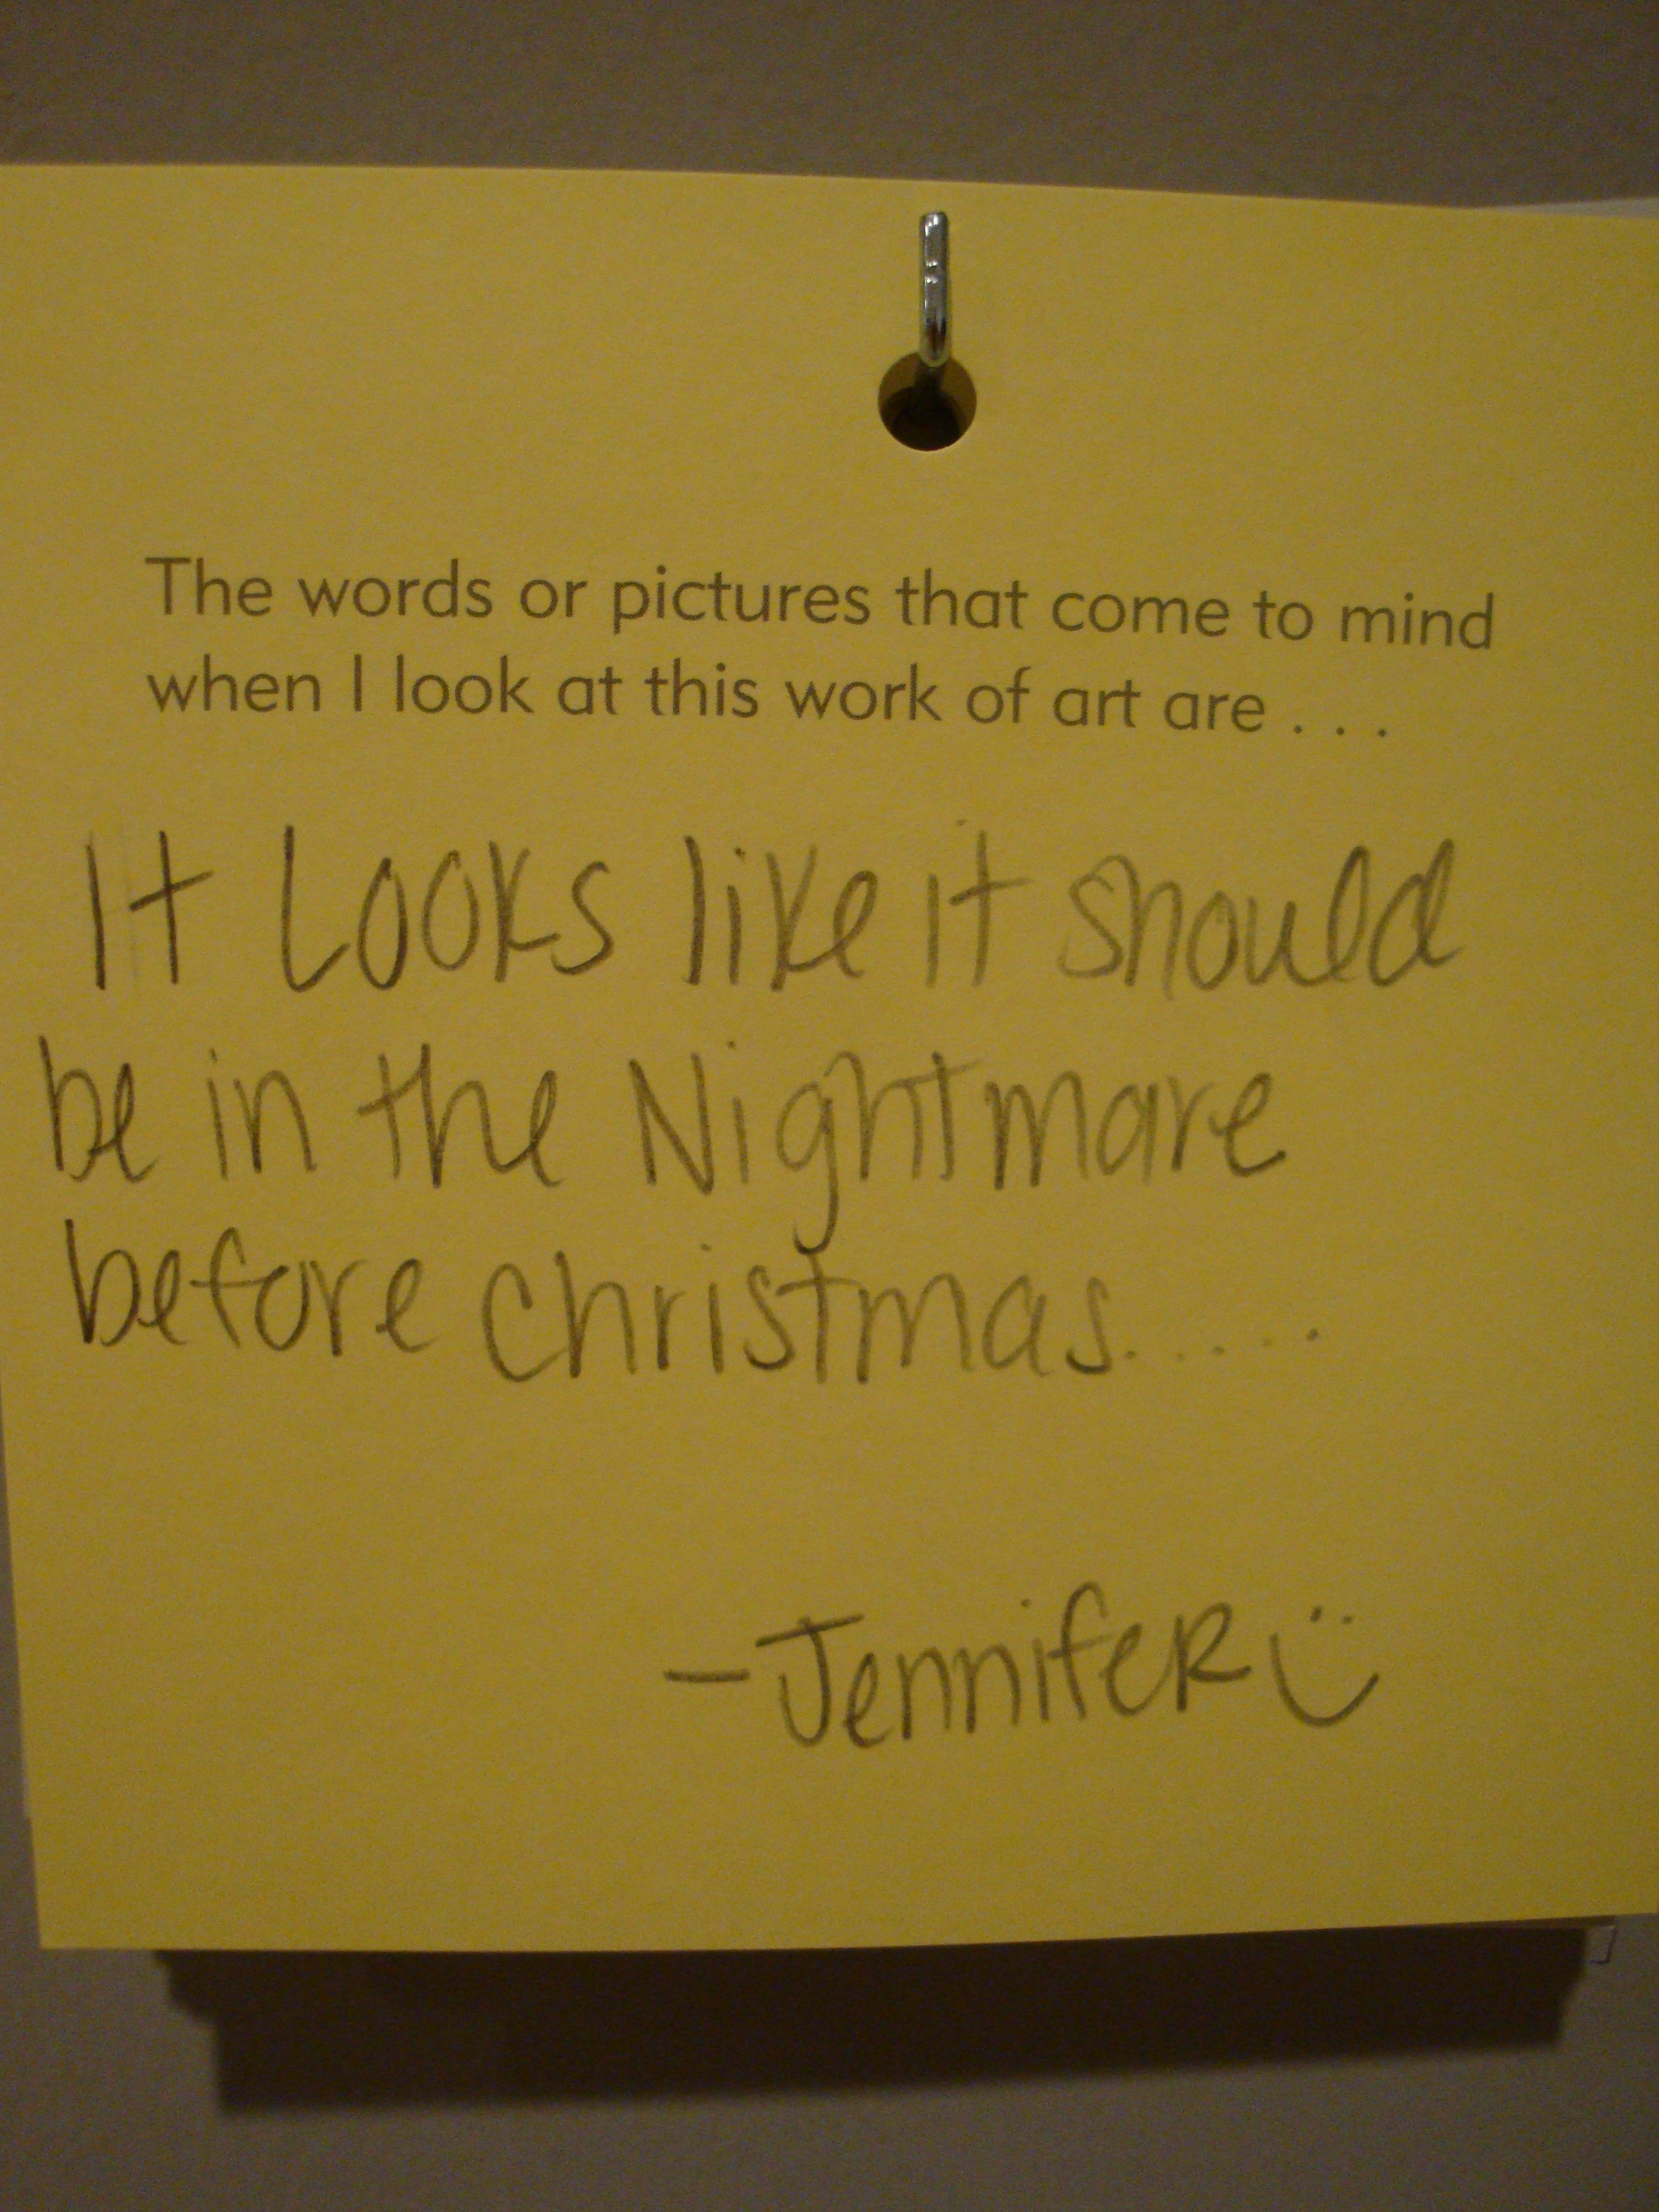 The words or pictures that come to mind
when I look at this work of art are . . .
It Looks like it should
be in the Nightmare
before Christmas.....
-JennifeR :)